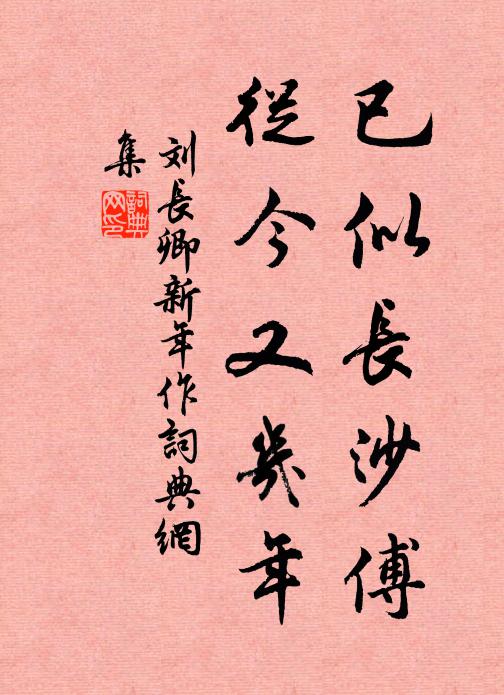 已似長沙傅
從今又幾年
刘長卿新年作詞典網
集
詞典網印